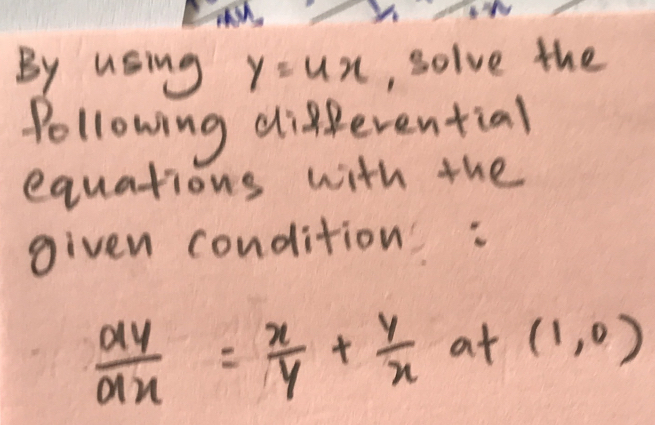 By using y = ux, solve the
following differential
equations with the
given condition :
dy/dx = x/y + y/x at (1,0)